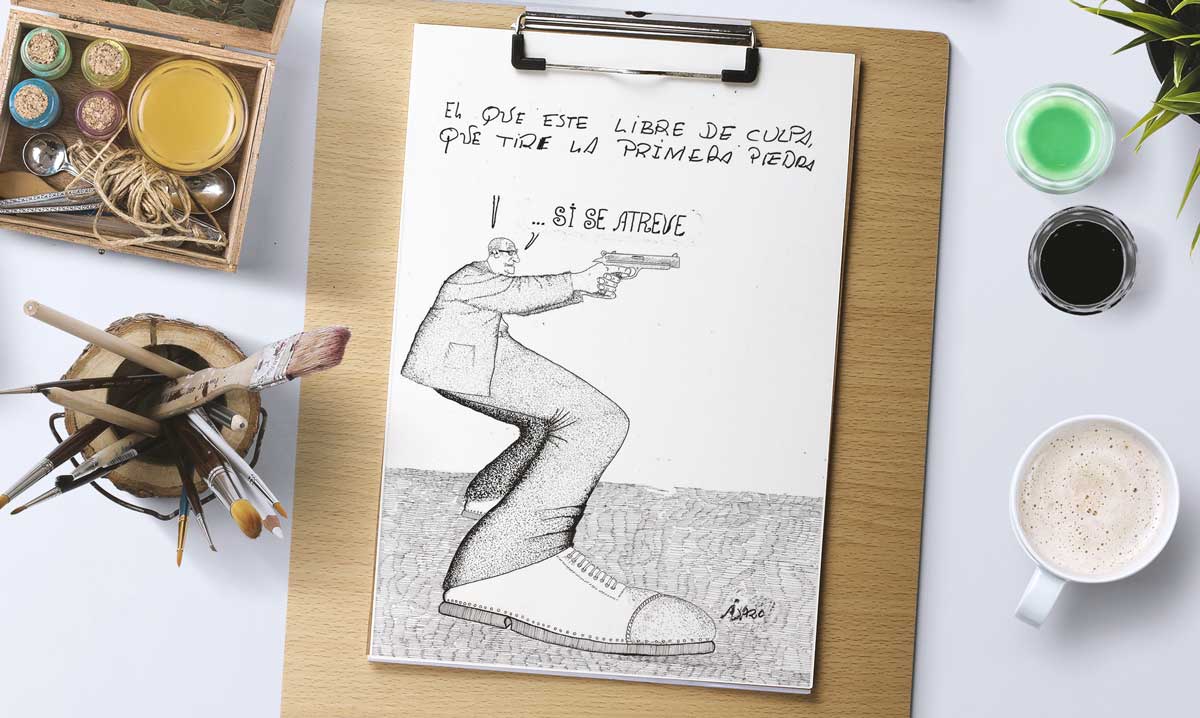 EL QUE ESTE LIBRE DE CULPA,
QUE TIRE LA PRIMERA PIEDRA
... SI SE ATREVE